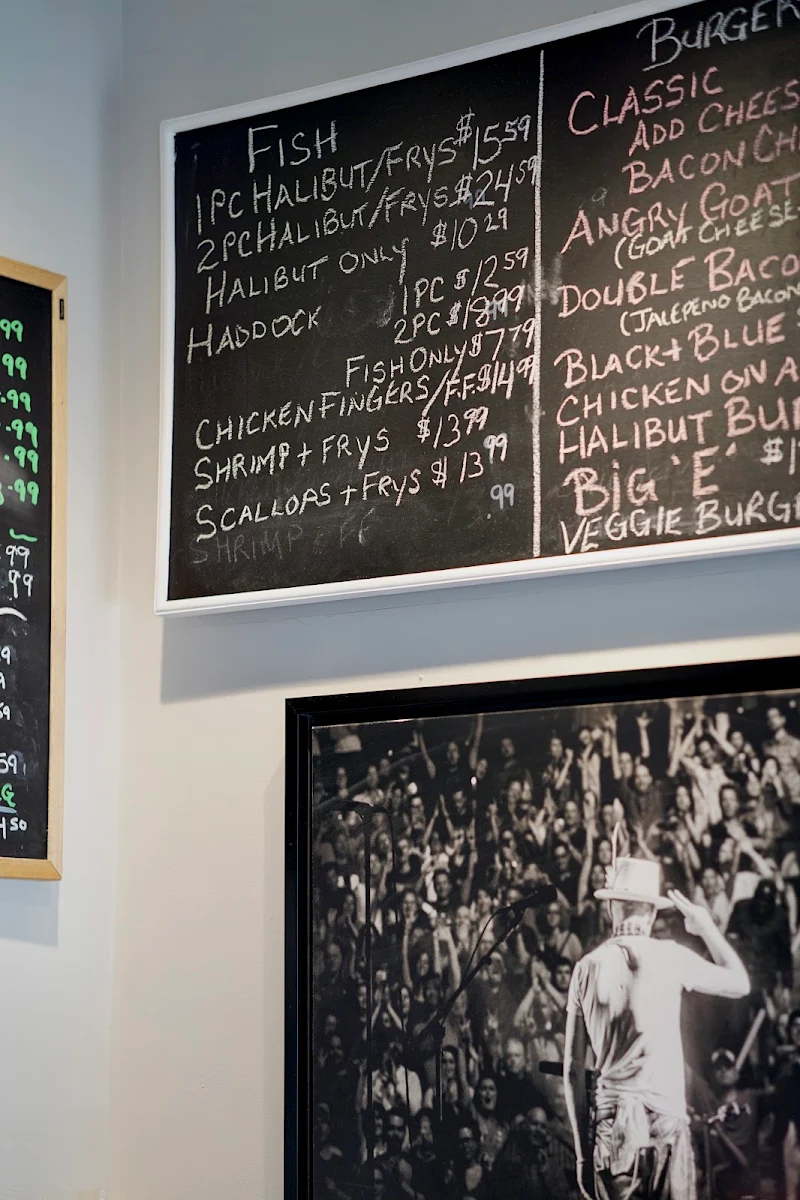 99
99
.99
.99
.99
.99
99
99
9
59
50
FISH
1PC HALIBUT/FRYS $15 59
2PC HALIBUT/FRYS $24 59
HALIBUT ONLY $10 29
HADDOCK 1PC $12 59
2PC $18 99
FISH ONLY $7 79
CHICKEN FINGERS/F.F. $14 99
SHRIMP + FRYS $13 99
SCALLOPS + FRYS $13 99
.99
SHRIMP FF
BURGER
CLASSIC
ADD CHEES
BACON CH
ANGRY GOAT
(GOAT CHEESE
DOUBLE BACO
(JALEPENO BACON
BLACK + BLUE
CHICKEN ON A
HALIBUT BU
BIG 'E' $1
VEGGIE BURG